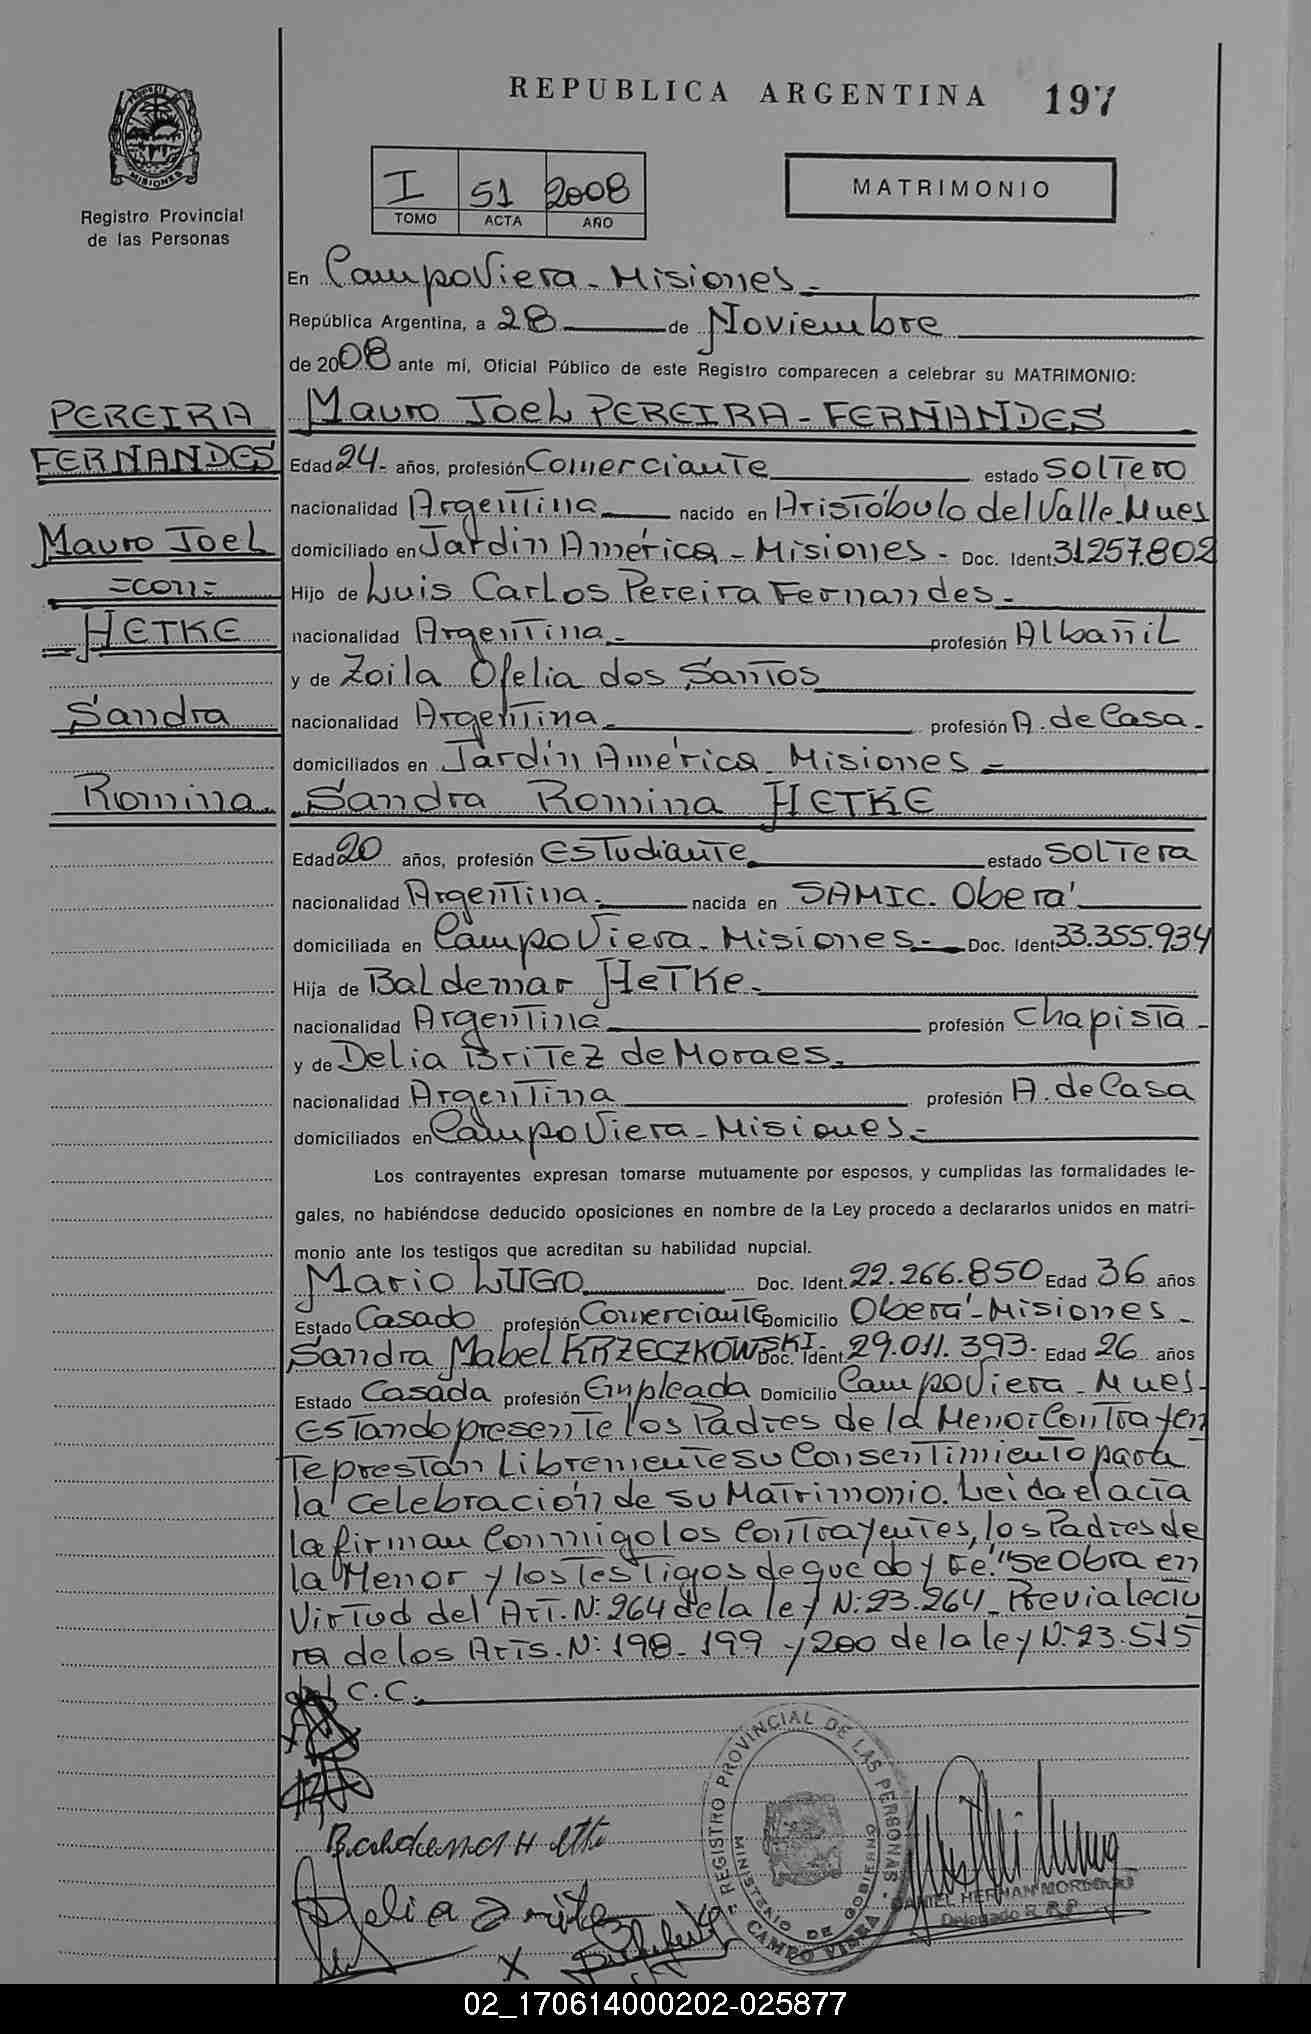 REPUBLICA ARGENTINA 197
PROVINCIA DE MISIONES
Registro Provincial
de las Personas
I 51 2008
TOMO ACTA AÑO
MATRIMONIO
En Campo Viera - Misiones -
República Argentina, a 28 de Noviembre
de 2008 ante mí, Oficial Público de este Registro comparecen a celebrar su MATRIMONIO:
PEREIRA
FERNANDES
Mauro Joel
=con=
HETKE
Sandra
Romina
Mauro Joel PEREIRA - FERNANDES
Edad 24- años, profesión Comerciante estado Soltero
nacionalidad Argentina nacido en Aristóbulo del Valle Mnes
domiciliado en Jardín América - Misiones - Doc. Ident 31257.802
Hijo de Luis Carlos Pereira Fernandes -
nacionalidad Argentina - profesión Albañil
y de Zoila Ofelia dos Santos
nacionalidad Argentina - profesión A. de Casa -
domiciliados en Jardín América - Misiones -
Sandra Romina HETKE
Edad 20 años, profesión Estudiante estado Soltera
nacionalidad Argentina - nacida en SAMIC. Oberá
domiciliada en Campo Viera - Misiones - Doc. Ident 33.355.934
Hija de Baldemar Hetke -
nacionalidad Argentina profesión Chapista -
y de Delia Britez de Moraes -
nacionalidad Argentina profesión A. de Casa
domiciliados en Campo Viera - Misiones -
Los contrayentes expresan tomarse mutuamente por esposos, y cumplidas las formalidades le-
gales, no habiéndose deducido oposiciones en nombre de la Ley procedo a declararlos unidos en matri-
monio ante los testigos que acreditan su habilidad nupcial.
Mario LUGO Doc. Ident. 22.266.850 Edad 36 años
Estado Casado profesión Comerciante Domicilio Oberá - Misiones -
Sandra Mabel KRZECZKOWSKI Doc. Ident 29.011.393- Edad 26 años
Estado Casada profesión Empleada Domicilio Campo Viera - Mnes -
Estando presente los Padres de la Menor Contrayen
te prestan Libremente su Consentimiento para
la celebración de su Matrimonio. Leida el acta
la firman Conmigo los Contrayentes, los Padres de
la Menor y los Testigos de que doy Fe. "Se Obra en
Virtud del Art. N: 264 de la ley N: 23.264 - Previa lectu
ra de los Arts. N: 198 - 199 y 200 de la ley N: 23.515
del C.C.
Baldemar Hetke
Delia Brite
X
REGISTRO PROVINCIAL DE LAS PERSONAS - CAMPO VIERA -
MINISTERIO DE GOBIERNO
DANIEL HERNAN MOREN
Delegado R.P.P.
02_170614000202-025877